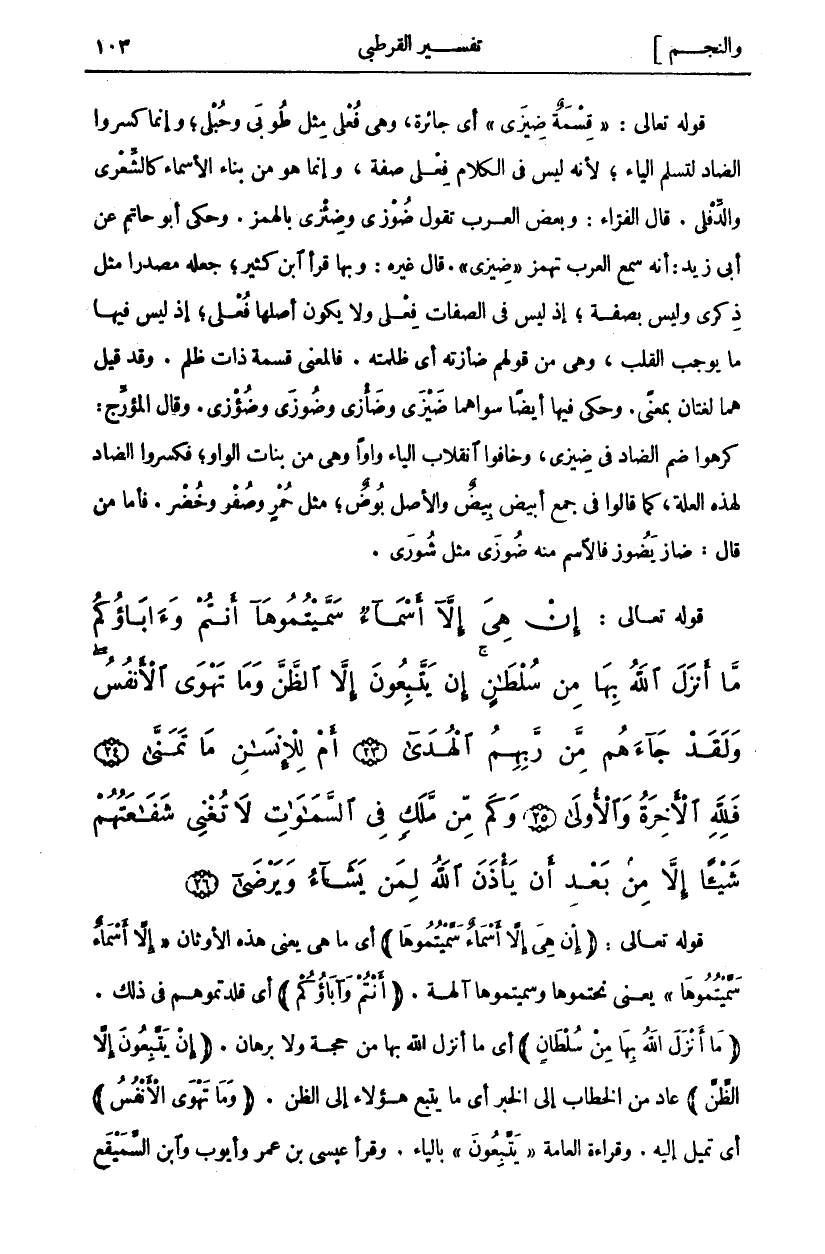 والنجـم ] تفسير القرطبى ١٠٣
قوله تعالى : « قِسْمَةٌ ضِيزَى » أى جائرة، وهى فُعْلى مثل طُوبَى وحُبْلى؛ وإنما كسروا
الضاد لتسلم الياء ؛ لأنه ليس فى الكلام فِعْلى صفة ، وإنما هو من بناء الأسماء كالشِّعْرى
والدِّفْلى . قال الفراء : وبعض العرب تقول ضُوْزى وضِئْزى بالهمز . وحكى أبو حاتم عن
أبى زيد : أنه سمع العرب تهمز «ضِيزى». قال غيره : وبها قرأ ٱبن كثير؛ جعله مصدرا مثل
ذِكرى وليس بصفة ؛ إذ ليس فى الصفات فِعْلى ولا يكون أصلها فُعْلى؛ إذ ليس فيها
ما يوجب القلب ، وهى من قولهم ضأزته أى ظلمته . فالمعنى قسمة ذات ظلم . وقد قيل
هما لغتان بمعنًى. وحكى فيها أيضًا سواهما ضَيْزَى وضَأْزى وضُوزَى وضُؤْزى. وقال المؤرِّج:
كرهوا ضم الضاد فى ضِيزى، وخافوا ٱنقلاب الياء واوًا وهى من بنات الواو؛ فكسروا الضاد
لهذه العلة، كما قالوا فى جمع أبيض بِيضٌ والأصل بُوضٌ؛ مثل حُمْرٍ وصُفْر وخُضْر . فأما من
قال : ضاز يَضُوز فالٱسم منه ضُوزَى مثل شُورَى .
قوله تعـالى : إِنْ هِىَ إِلَّآ أَسْمَآءٌ سَمَّيْتُمُوهَآ أَنتُمْ وَءَابَآؤُكُم
مَّآ أَنزَلَ ٱللَّهُ بِهَا مِن سُلْطَـٰنٍ ۚ إِن يَتَّبِعُونَ إِلَّا ٱلظَّنَّ وَمَا تَهْوَى ٱلْأَنفُسُ ۖ
وَلَقَدْ جَآءَهُم مِّن رَّبِّهِمُ ٱلْهُدَىٰٓ ﴿٢٣﴾ أَمْ لِلْإِنسَـٰنِ مَا تَمَنَّىٰ ﴿٢٤﴾
فَلِلَّهِ ٱلْأَخِرَةُ وَٱلْأُولَىٰ ﴿٢٥﴾ وَكَم مِّن مَّلَكٍ فِى ٱلسَّمَـٰوَٰتِ لَا تُغْنِى شَفَـٰعَتُهُمْ
شَيْـًٔا إِلَّا مِنۢ بَعْدِ أَن يَأْذَنَ ٱللَّهُ لِمَن يَشَآءُ وَيَرْضَىٰٓ ﴿٢٦﴾
قوله تعـالى : ﴿ إِن هِىَ إِلَّا أَسْمَاءٌ سَمَّيْتُمُوهَا ﴾ أى ما هى يعنى هذه الأوثان « إِلَّا أَسْمَاءٌ
سَمَّيْتُمُوهَا » يعـنى نحتموها وسميتموها آلهة . ﴿ أَنْتُمْ وَآبَاؤُكُمْ ﴾ أى قلدتموهـم فى ذلك .
﴿ مَا أَنْزَلَ اللهُ بِهَا مِنْ سُلْطَانٍ ﴾ أى ما أنزل الله بها من حجـة ولا برهان . ﴿ إِنْ يَتَّبِعُونَ إِلَّا
الظَّنَّ ﴾ عاد من الخطاب إلى الخبر أى ما يتبع هـؤلاء إلى الظن . ﴿ وَمَا تَهْوَى الْأَنْفُسُ ﴾
أى تميل إليه . وقراءة العامة « يَتَّبِعُونَ » بالياء . وقرأ عيسى بن عمر وأيوب وٱبن السَّمَيْقَع